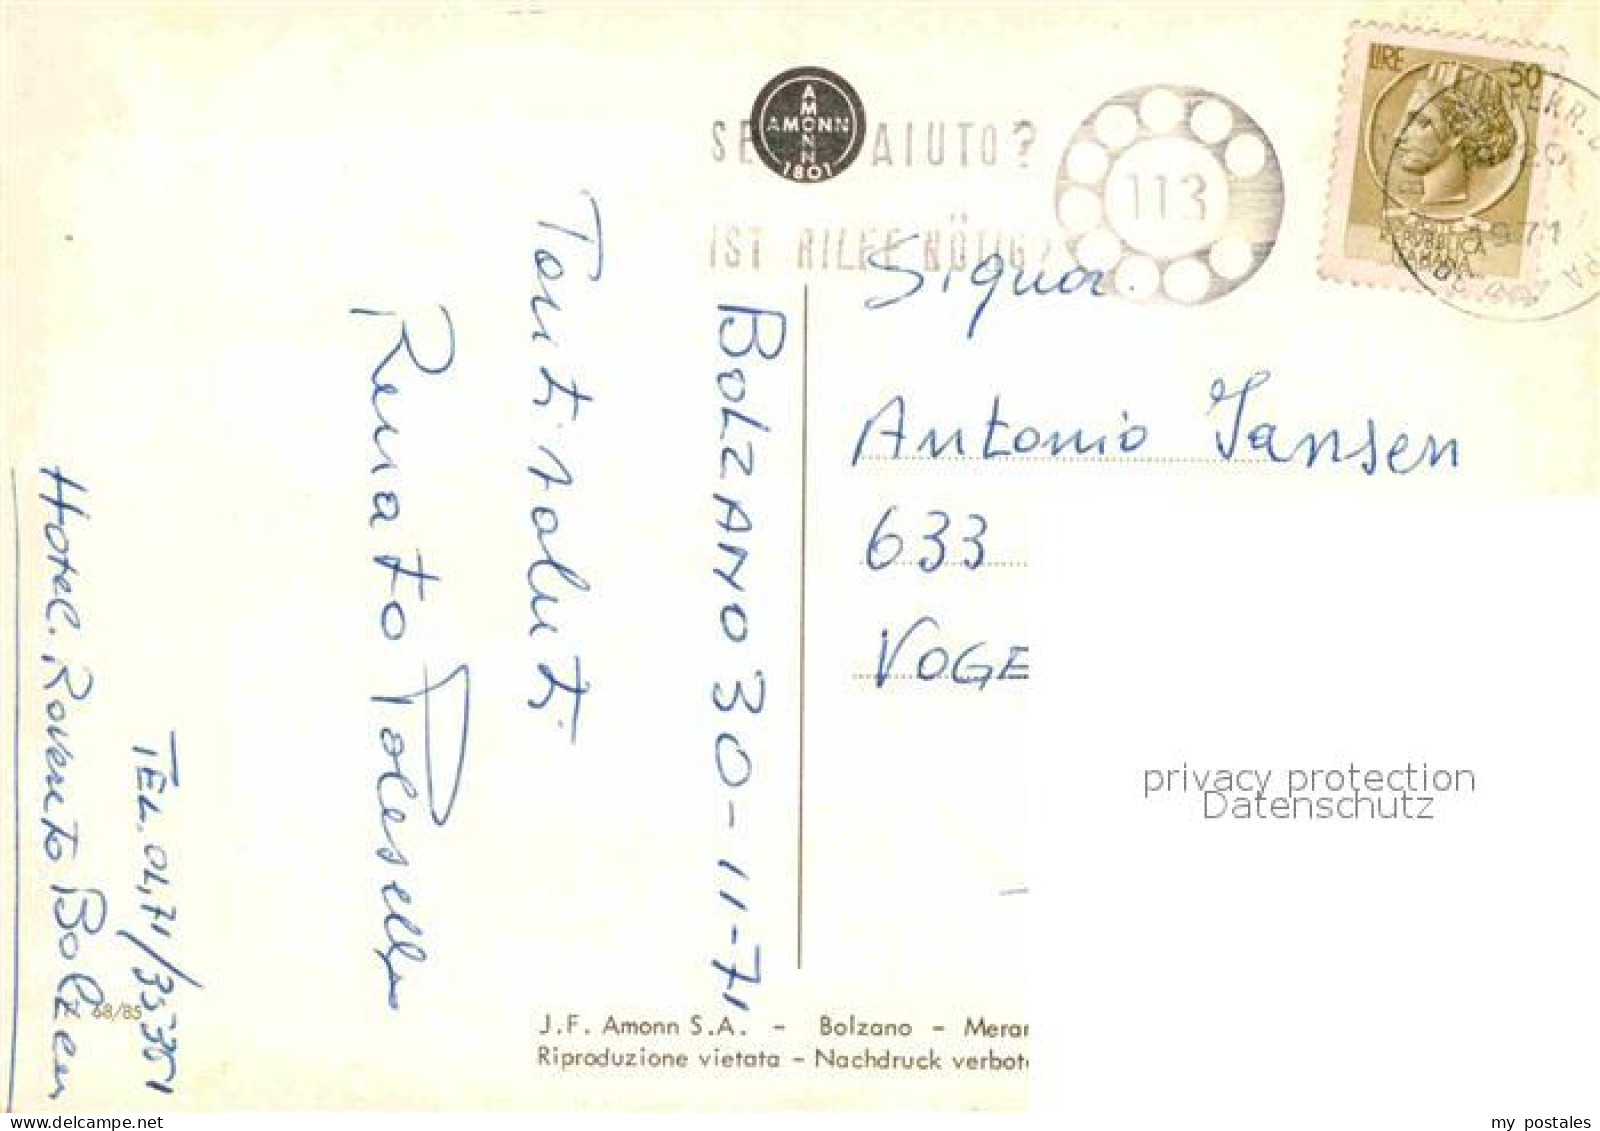 AMONN
AMONN
1801
SE AIUTO?
113
IST HILFE NÖTIG?
LIRE 50
REPUBBLICA
ITALIANA
1971
Signor.
Antonio Jansen
633
VOGE
BOLZANO 30-11-71
Tanti saluti
Renato Polesello
TEL. 0471/35351
Hotel. Rovereto Bolzen
68/85
J.F. Amonn S.A. – Bolzano – Meran
Riproduzione vietata – Nachdruck verbote
privacy protection
Datenschutz
my postales